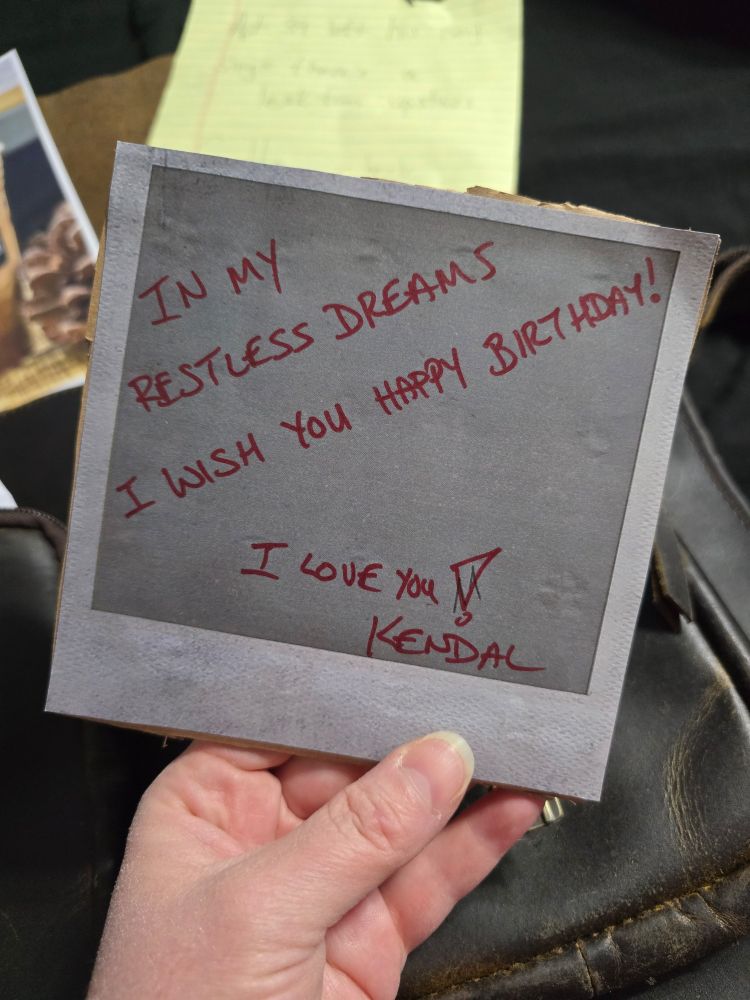 IN MY
RESTLESS DREAMS
I WISH YOU HAPPY BIRTHDAY!
I LOVE YOU!
KENDAL